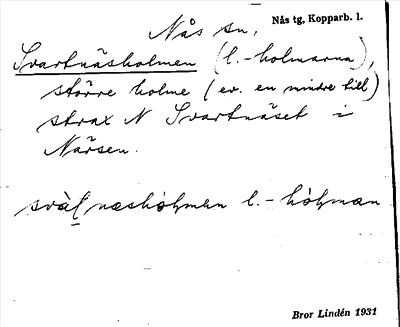 Nås sn, Nås tg, Kopparb. l.
Svartnäsholmen (l. -holmarna),
större holme (ev. en mindre till)
strax N Svartnäset i
Närsen.
svàʈnæshòɭmen l. -hòɭman
Bror Lindén 1931